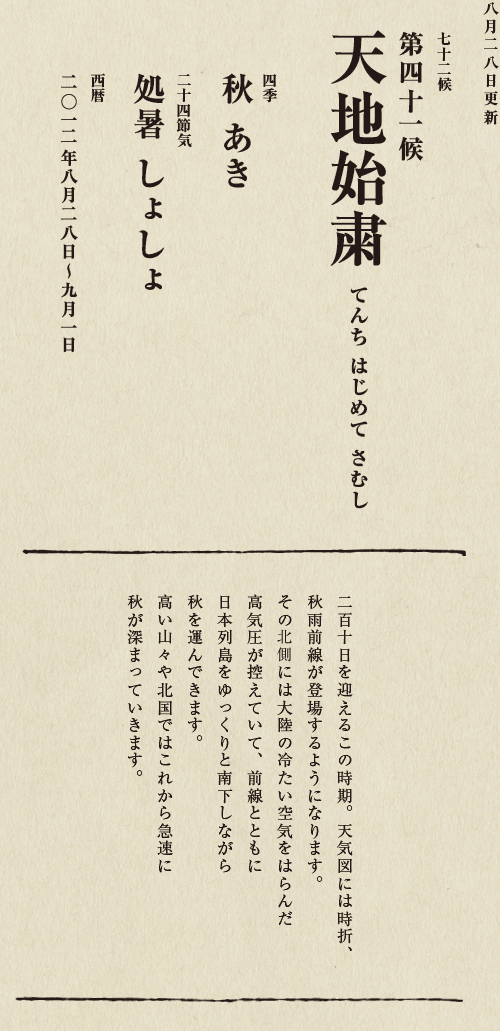 八月二八日更新
七十二候
第四十一候
天地始粛 てんち はじめて さむし
四季
秋 あき
二十四節気
処暑 しょしょ
西暦
二〇一二年八月二八日〜九月一日
二百十日を迎えるこの時期。天気図には時折、
秋雨前線が登場するようになります。
その北側には大陸の冷たい空気をはらんだ
高気圧が控えていて、前線とともに
日本列島をゆっくりと南下しながら
秋を運んできます。
高い山々や北国ではこれから急速に
秋が深まっていきます。